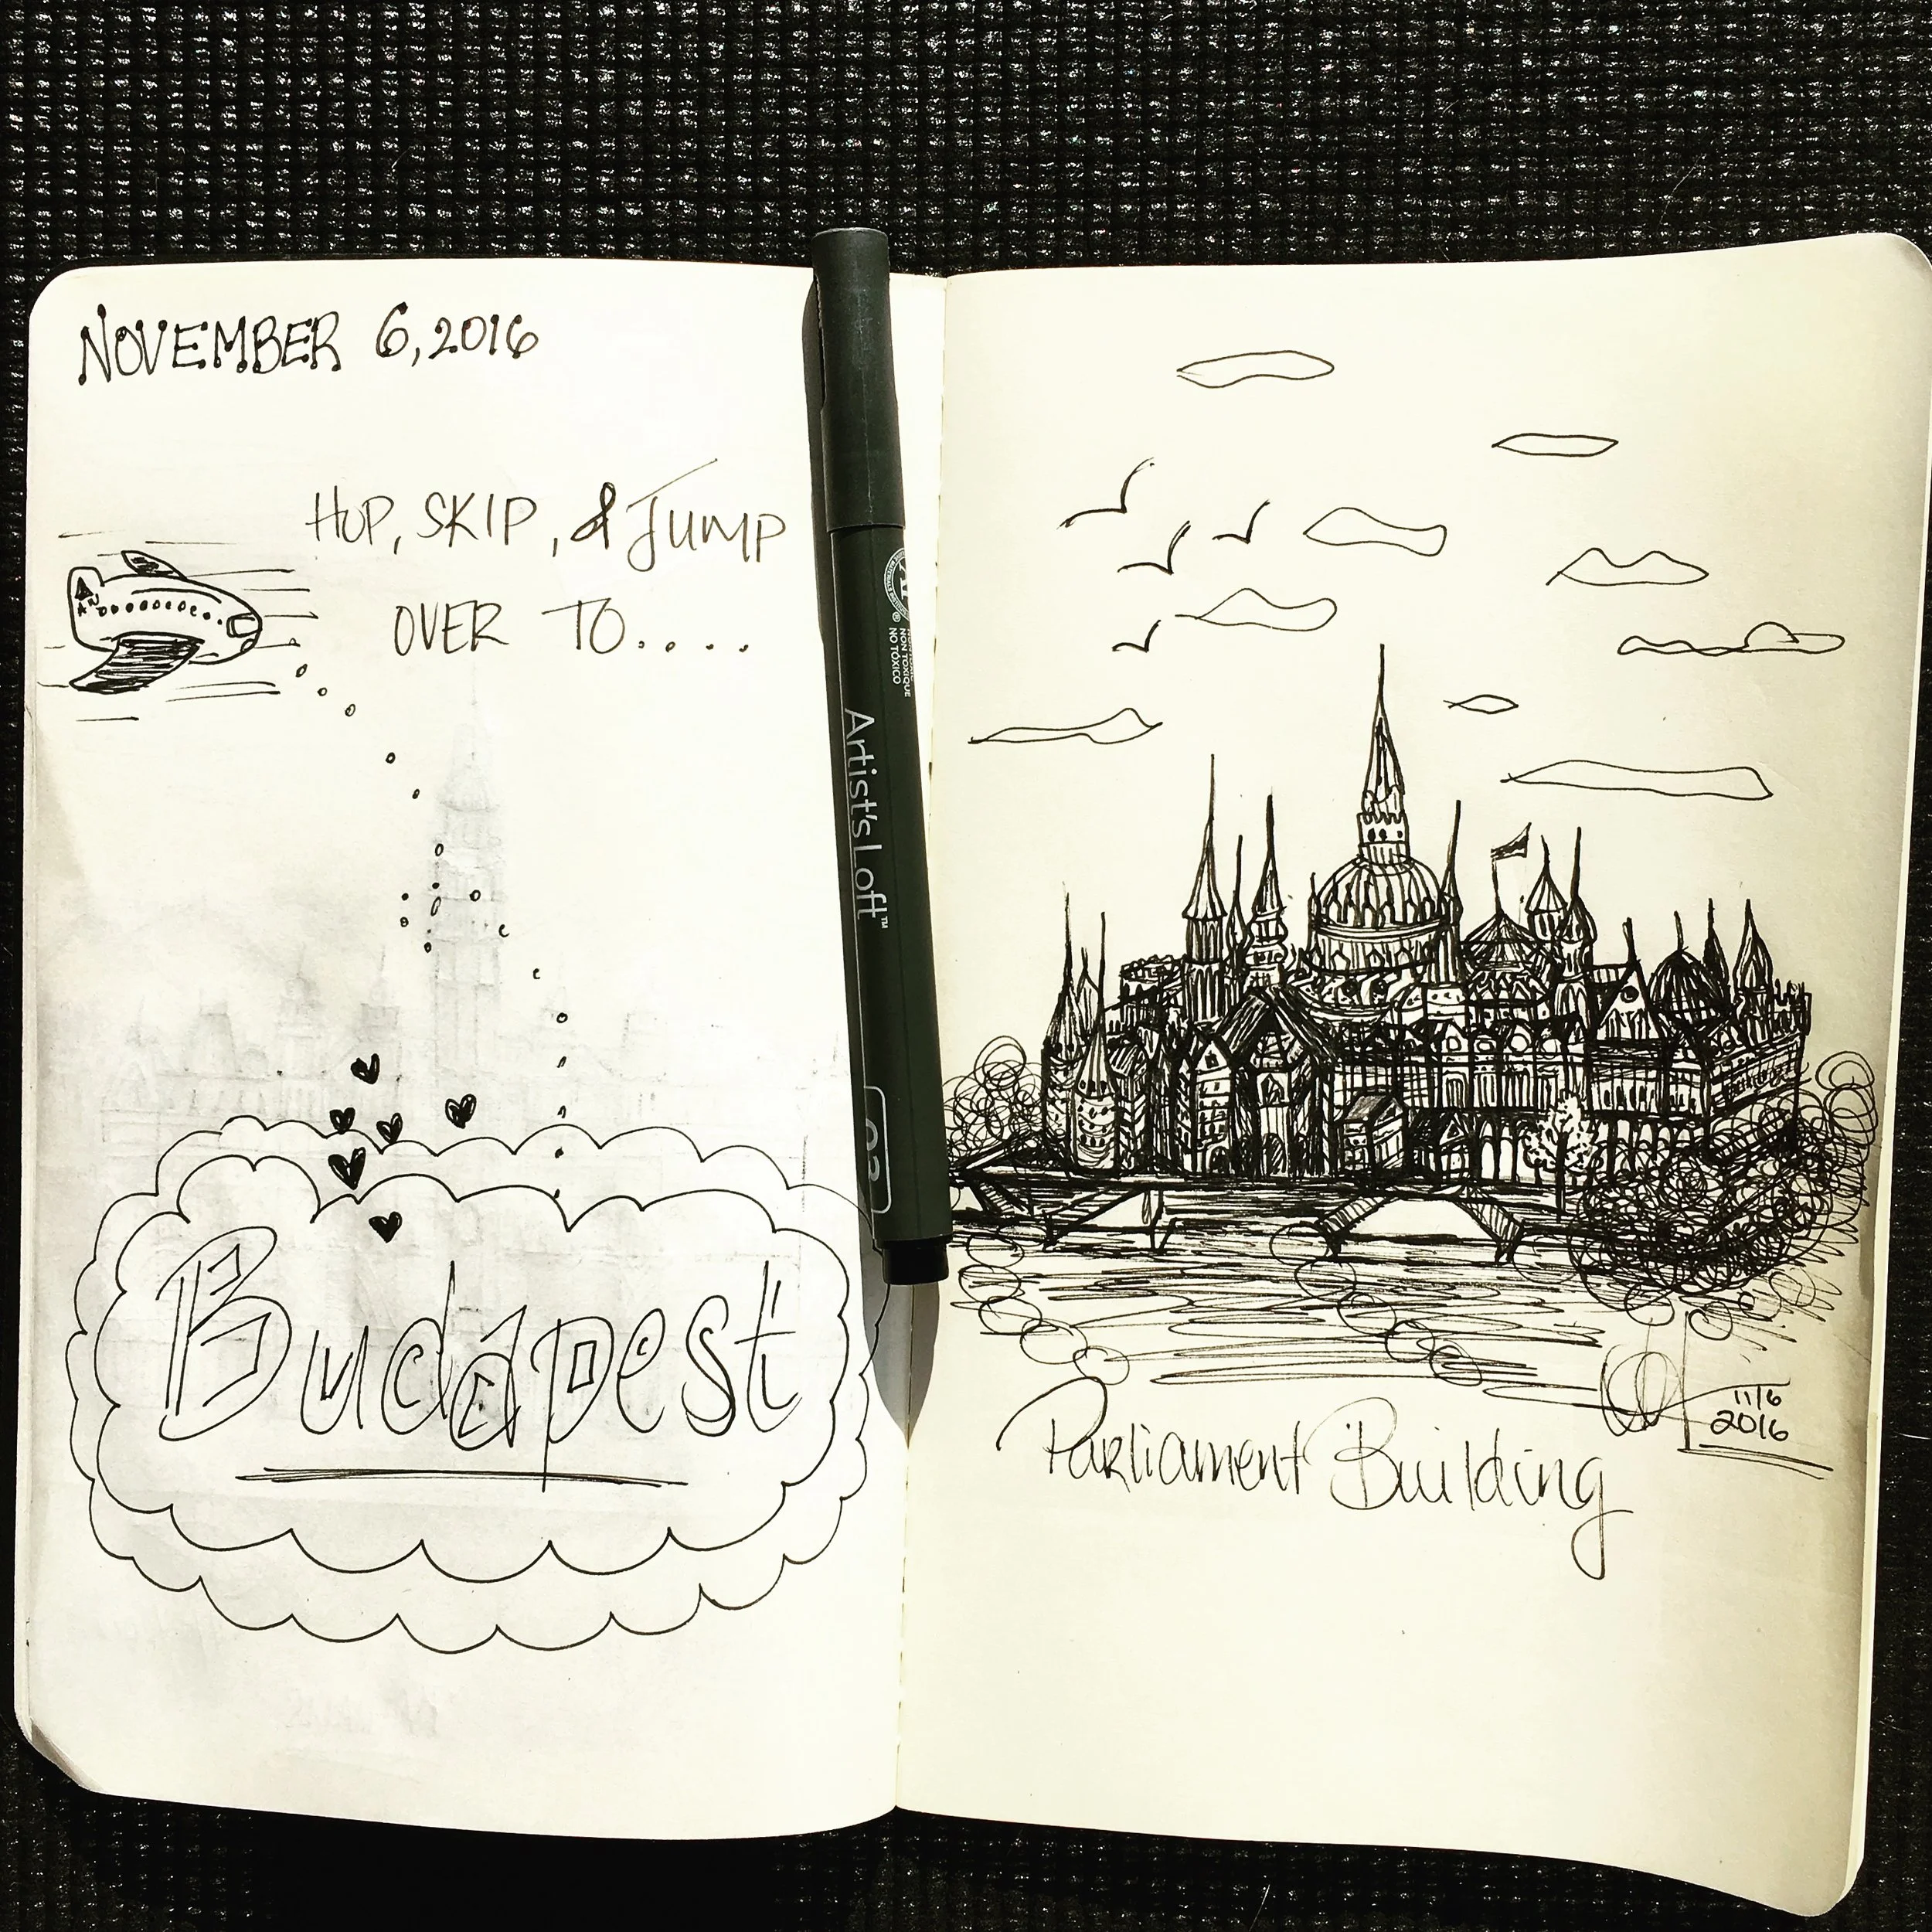 NOVEMBER 6, 2016
HOP, SKIP, & JUMP
OVER TO....
Budapest
Artist's Loft™
NON TOXIQUE
NO TÓXICO
11/6
2016
Parliament Building